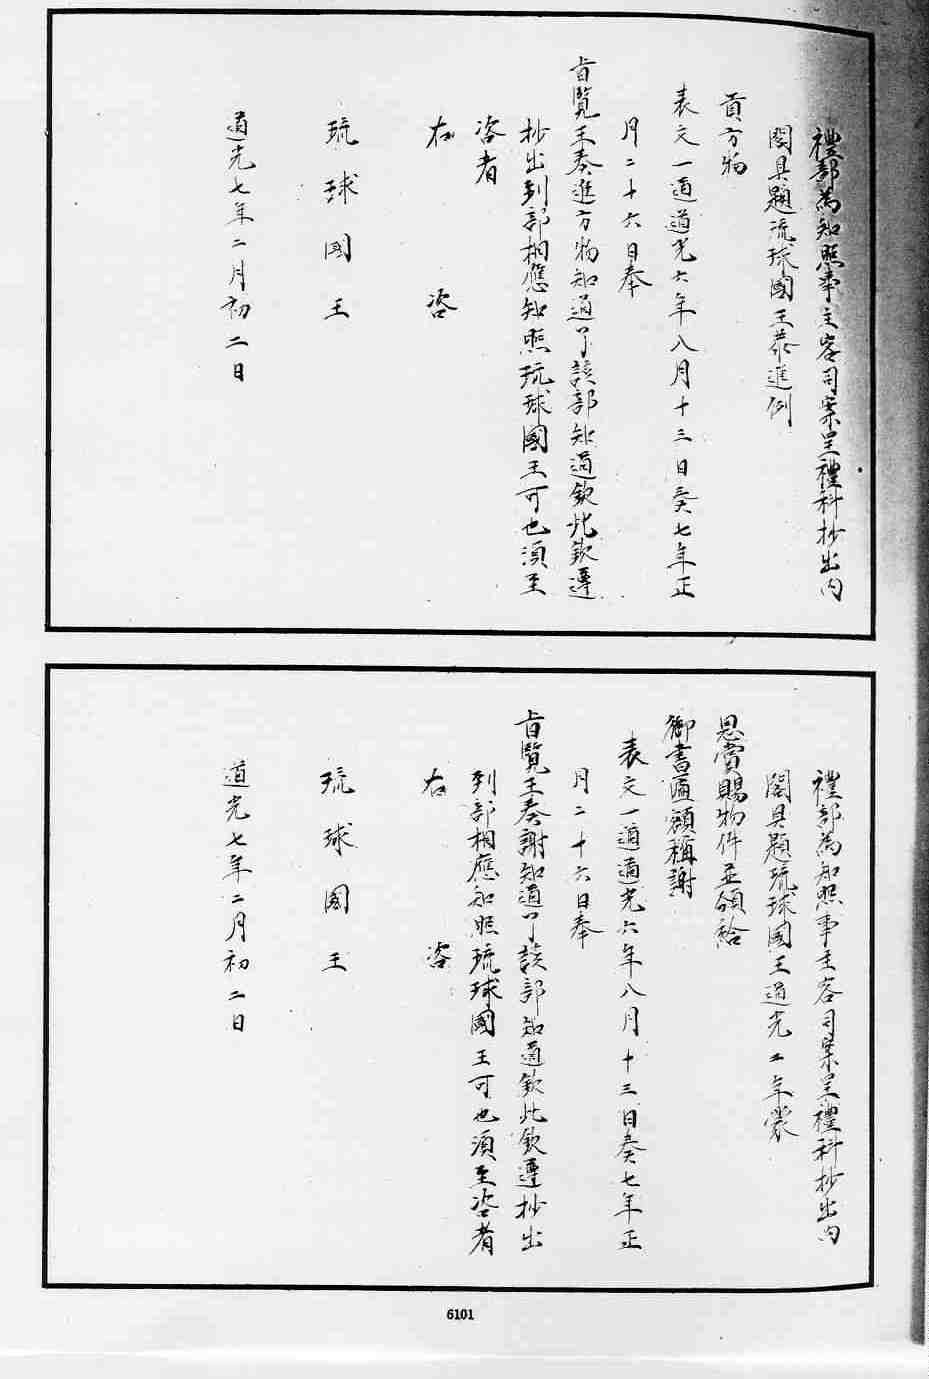 禮部為知照事主客司案呈禮科抄出內
閣具題流球國王恭進例
貢方物
表文一道道光六年八月十三日奏七年正
月二十六日奉
旨覽王奏進方物知道了該部知道欽此欽遵
抄出到部相應知照琉球國王可也須至
咨者
右咨
琉球國王
道光七年二月初二日
禮部為知照事主客司案呈禮科抄出內
閣具題琉球國王道光二年蒙
恩賞賜物件並頒給
御書匾額稱謝
表文一道道光六年八月十三日奏七年正
月二十六日奉
旨覽王奏謝知道了該部知道欽此欽遵抄出
到部相應知照琉球國王可也須至咨者
右咨
琉球國王
道光七年二月初二日
6101